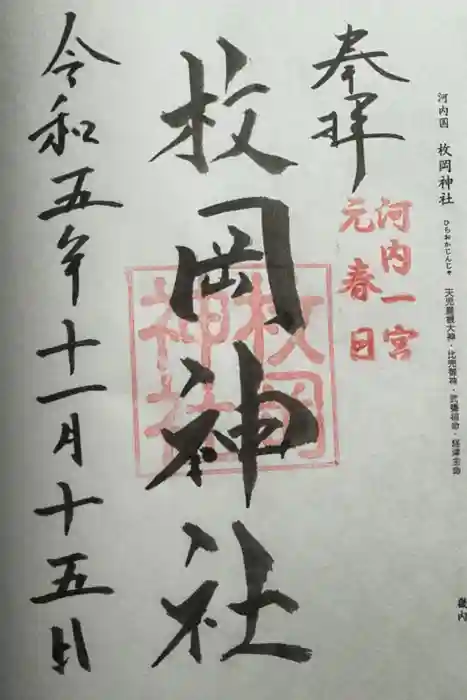 河内国 枚岡神社 ひらおかじんじゃ 天児屋根大神・比売御神・武甕槌命・経津主命
奉拝
河内一宮
元春日
枚岡神社
枚岡
神社
令和五年十一月十五日